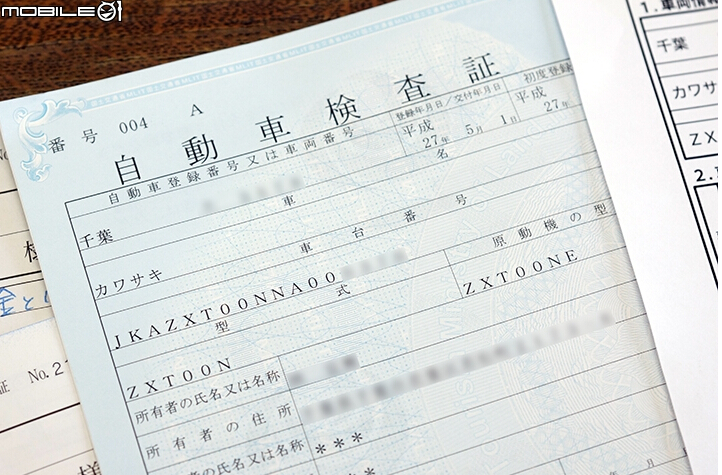 MOBILE01
番号 004 A
自動車検査証
自動車登録番号又は車両番号
登録年月日/交付年月日
初度登録
平成
27年 5月 1日
平成
27年
千葉
車名
カワサキ
車台番号
原動機の型
JKAZXT00NNA00
ZXT00NE
型式
ZXT00N
所有者の氏名又は名称
所有者の住所
の氏名又は名称
***
***
様
証 No.21
No.
1.車両情報
千葉
カワサキ
ZX
2.